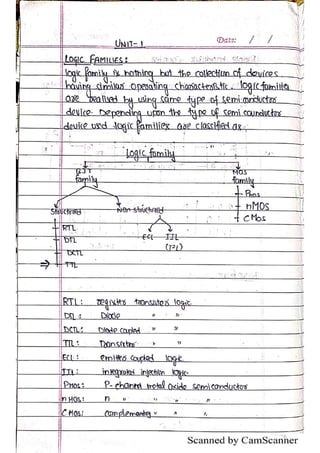 UNIT-1
Date: / /
LOGIC FAMILIES:
logic family is nothing but the collection of devices
having similar operating characteristic. logic families
are realized by using same type of semiconductor
device. Depending upon the type of semi counductor
device used logic families are classified as.
Logic family
BJT family
MOS family
Pmos
nMOS
CMos
Saturated
Non saturated
RTL
DTL
DCTL
⇒ TTL
ECL IIL
(I²L)
RTL: transistor logic
DTL: Diode " "
DCTL: Diode coupled " "
TTL: Transistor " "
ECL: emitter coupled logic
IIL: integrated injection logic
Pmos: P-channel metal oxide semiconductor
n MOS: n " " " "
C MOS: complementary " " "
Scanned by CamScanner